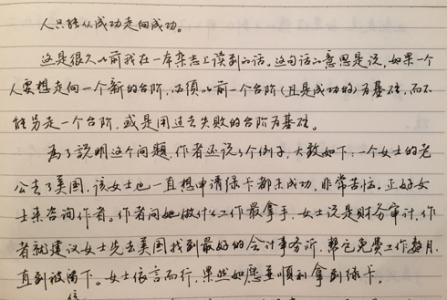 人只能从成功走向成功。
这是很久以前我在一本杂志上读到的话。这句话的意思是说，如果一个
人要想走向一个新的台阶，必须以前一个台阶（且是成功的）为基础，而不
能另走一个台阶，或是用过去失败的台阶为基础。
为了说明这个问题，作者还说了个例子，大致如下：一个女士的老
公去了美国，该女士也一直想申请绿卡都未成功，非常苦恼。正好女
士来咨询作者。作者问她做什么工作最拿手，女士说是财务审计，作
者就建议女士先去美国找到最好的会计事务所，帮它免费工作每月，
直到被留下。女士依言而行，果然如愿至顺利拿到绿卡。